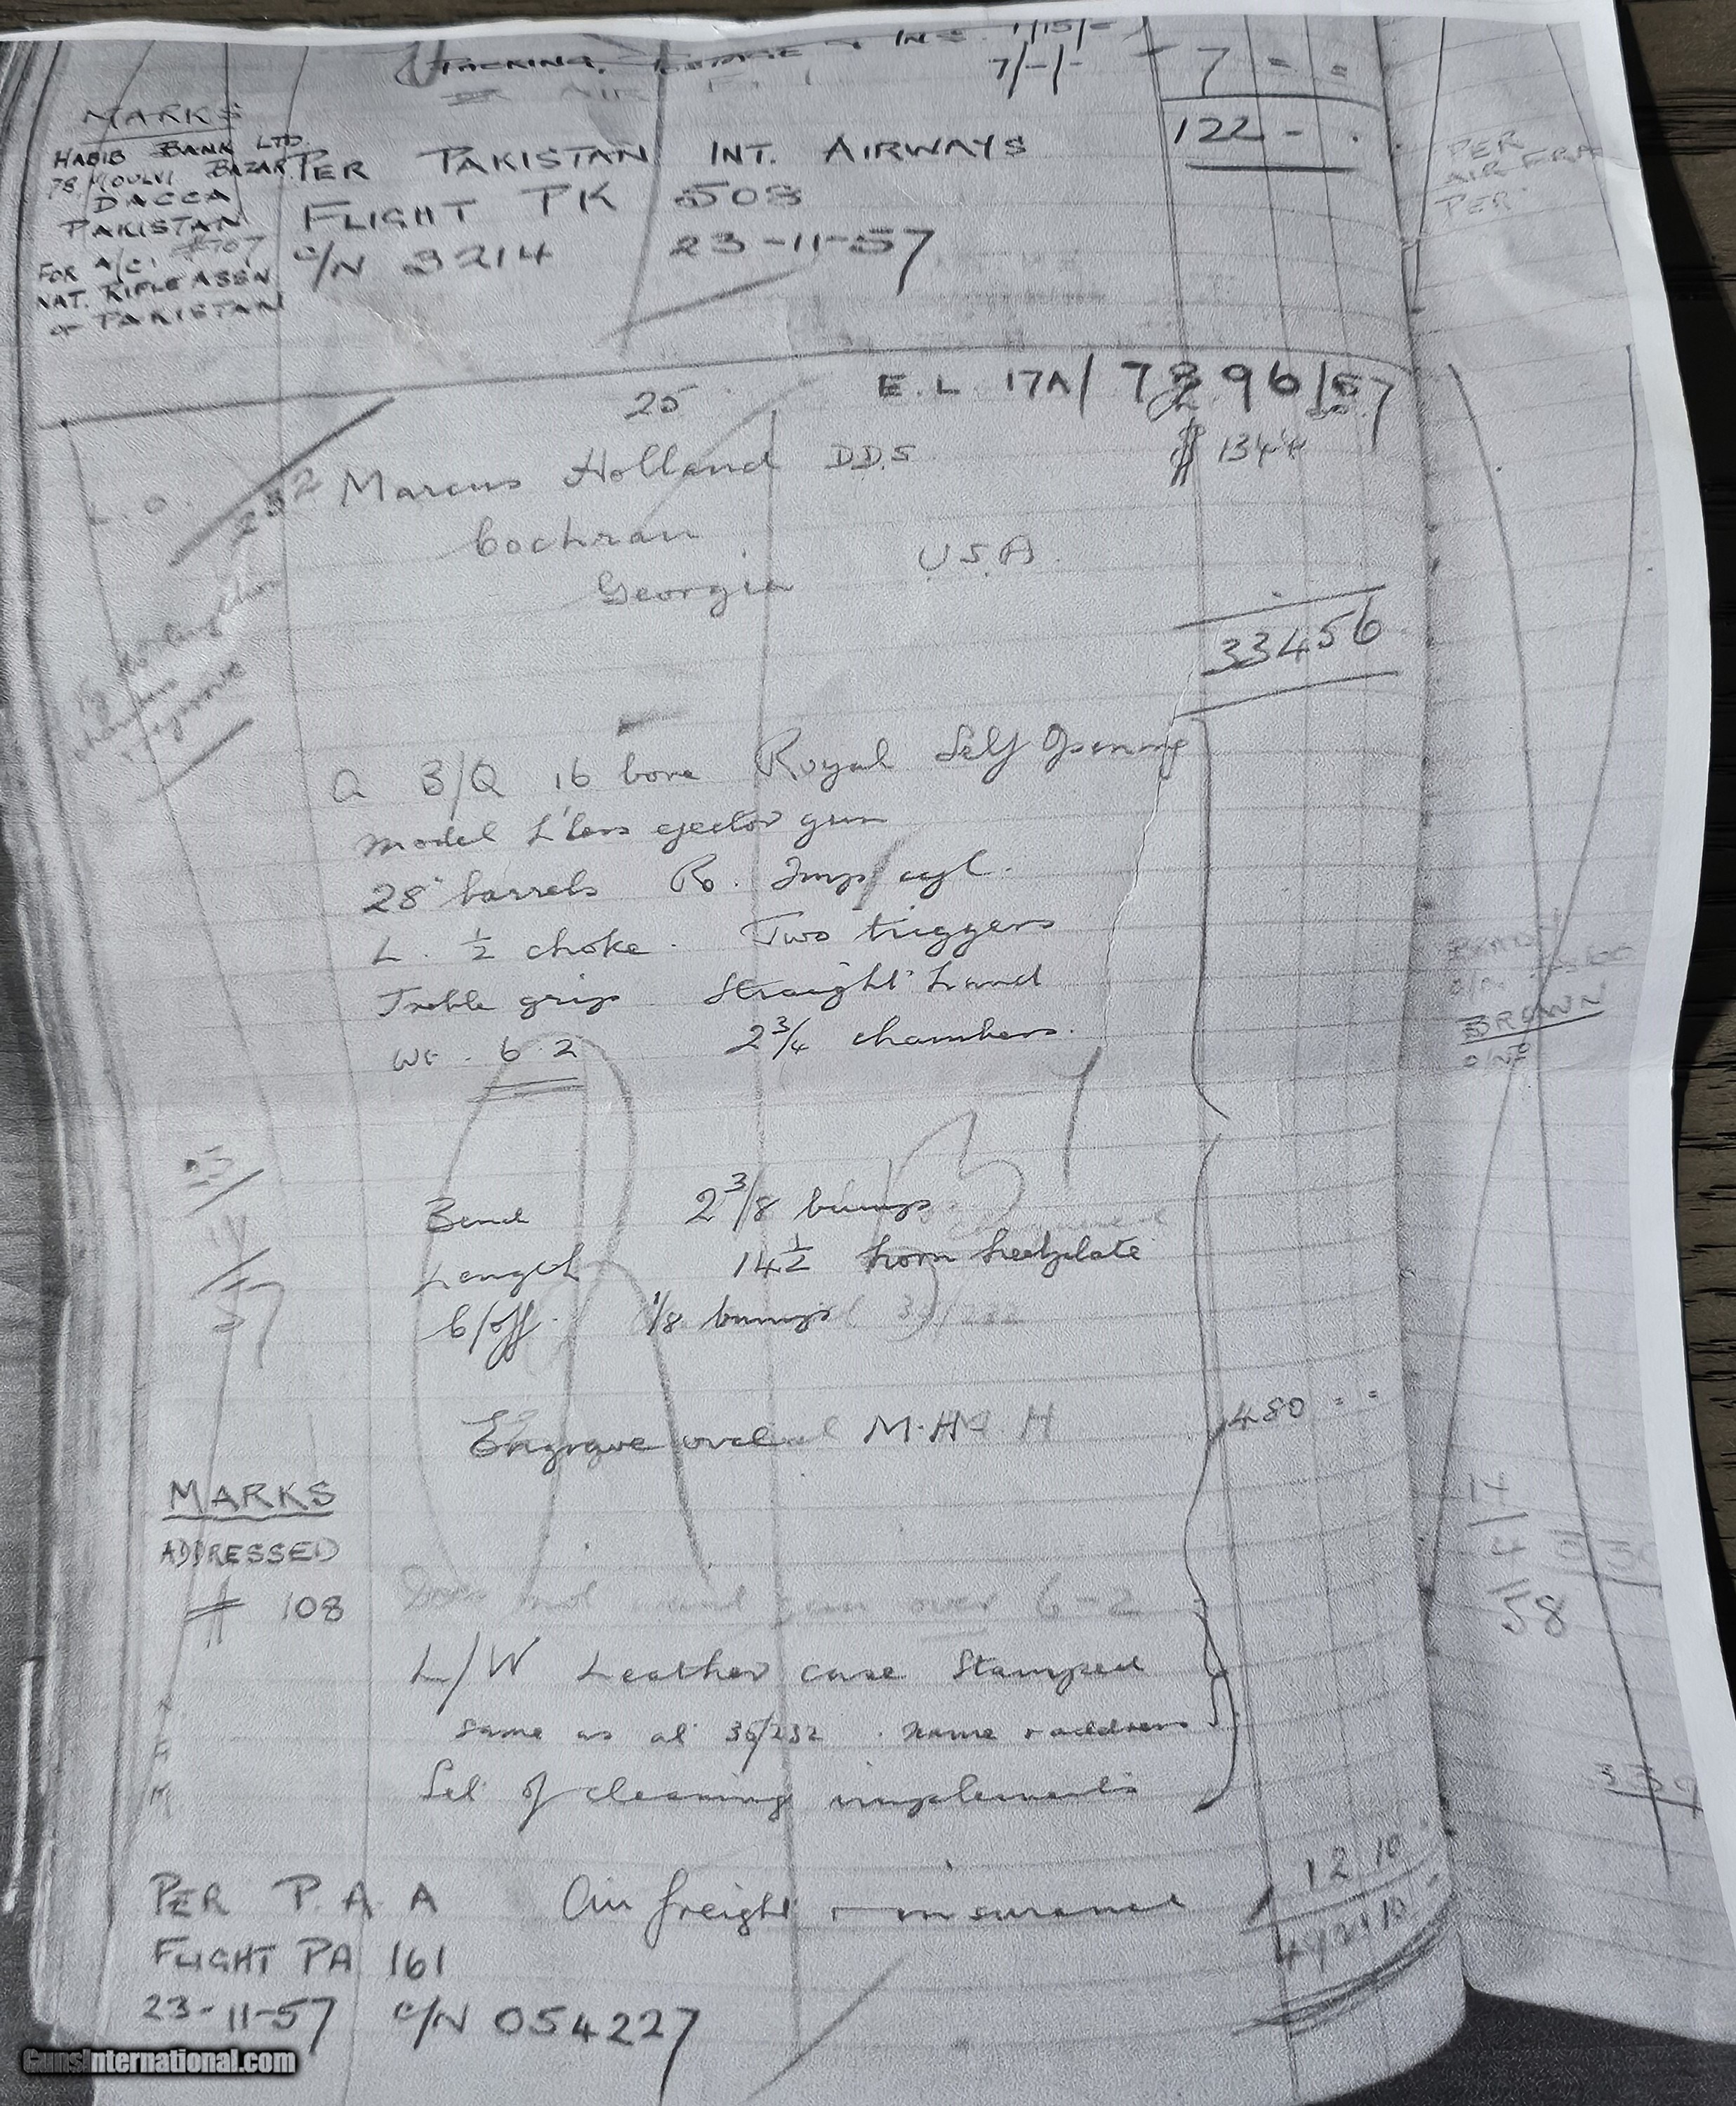 PACKING, POSTAGE & INS. 1/15/=
7/-/- 7 = =
AIR
122 - .
MARKS
HABIB BANK LTD.
78, MOULVI BAZAR.
DACCA
PAKISTAN
FOR A/C: #707
NAT. RIFLE ASSN
OF PAKISTAN
PER PAKISTAN INT. AIRWAYS
FLIGHT PK 508
C/N 3214 23-11-57
PER
AIR
PER
25 E.L 17A/7396/57
L.O. 232 Marcus Holland D.D.S $ 1344
Cochran
Georgia U.S.A.
33456
A B/Q 16 bore Royal Self Opening
model L'less ejector gun
28" barrels R. Imp/cyl.
L. 1/2 choke. Two triggers
Treble grip Straight hand
Wt. 6.2 2 3/4 chambers.
BROWN
Bend 2 3/8 bumps
Length 14 1/2 horn heelplate
C/off. 1/8 bumps 35/232
Engrave oval M.H. H
480 = =
MARKS
ADDRESSED
# 108
not want gun over 6-2
L/W Leather case Stamped
same as at 35/232. name & address
Set of cleaning implements
14
4
58
PER P.A.A Air freight & insurance 12 10
FLIGHT PA 161
23-11-57 C/N 054227
GunsInternational.com